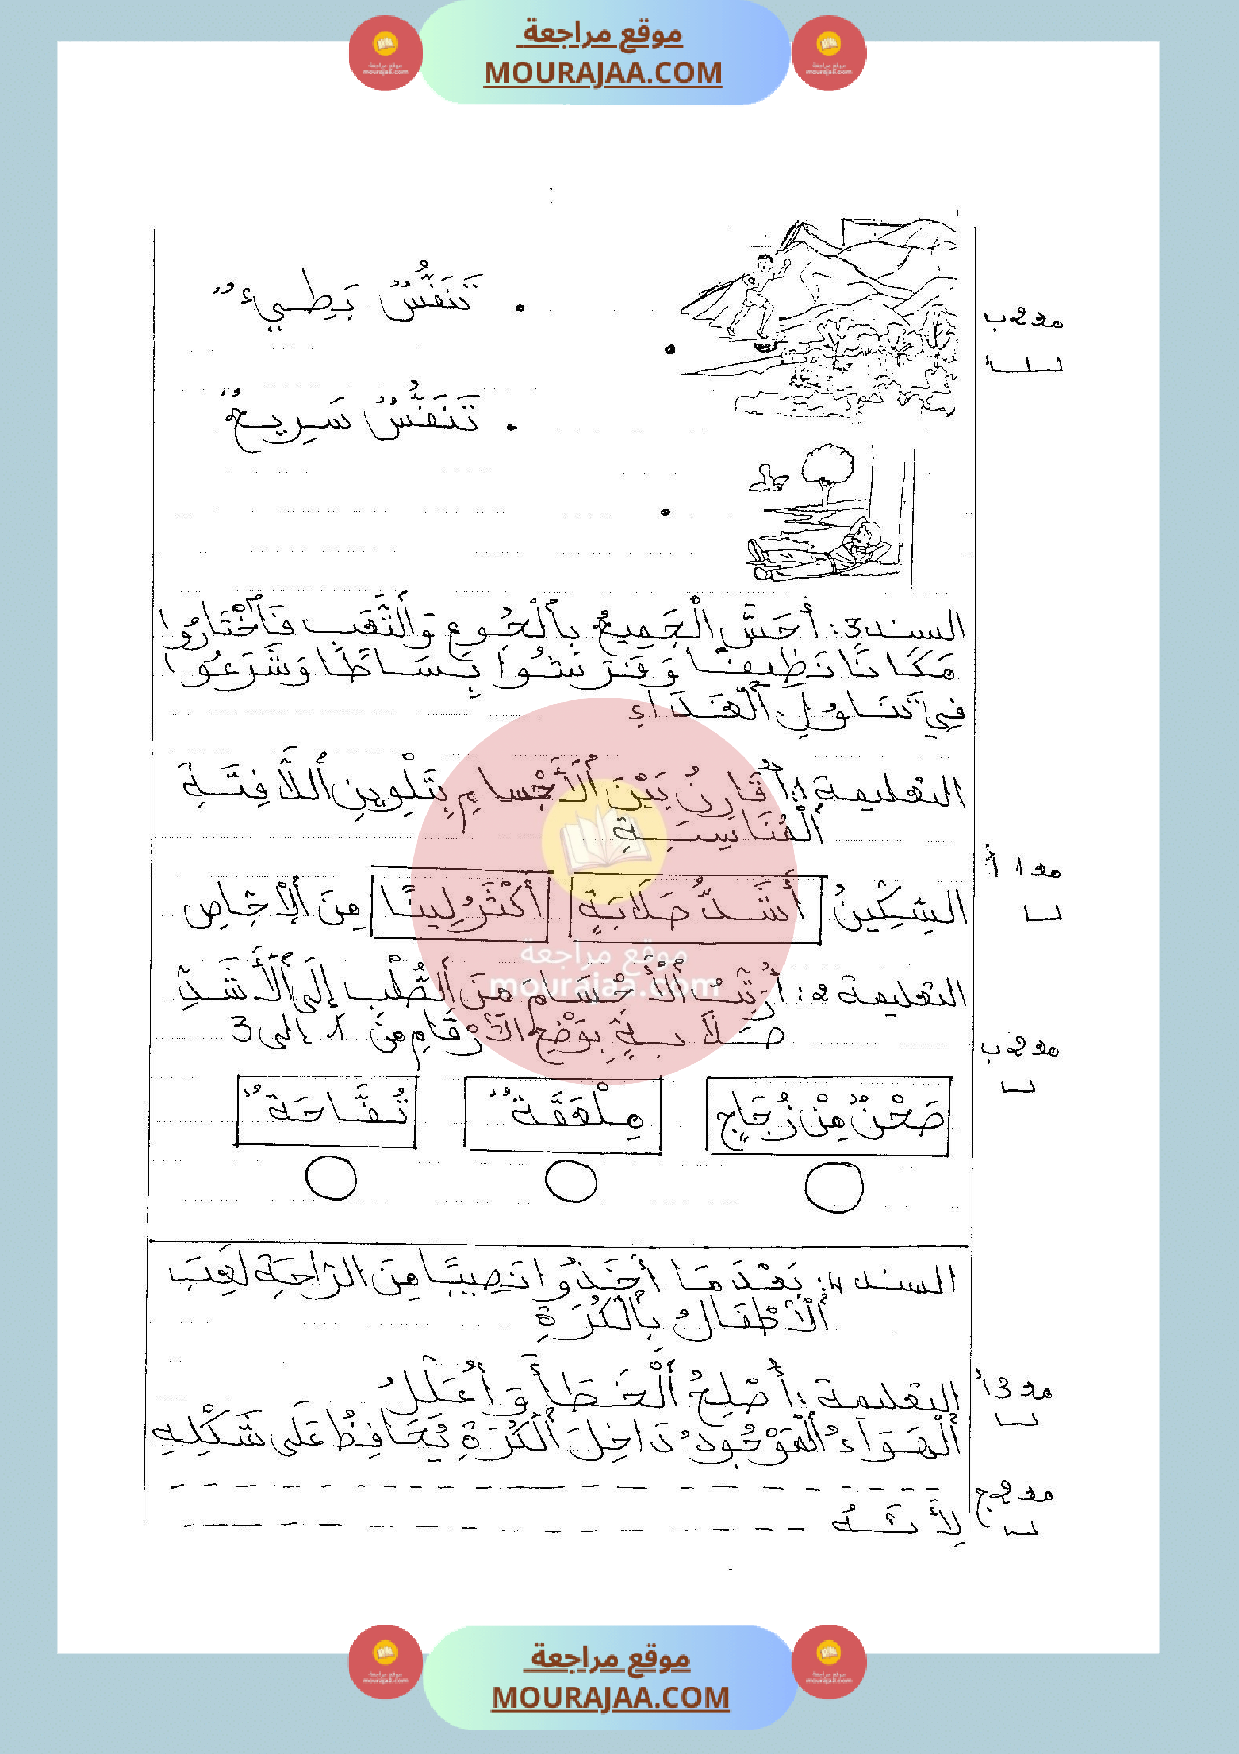 موقع مراجعة
MOURAJAA.COM
تَنَفُّسٌ بَطِيءٌ
مع2ب
تَنَفُّسٌ سَرِيعٌ
السند3: أَحَسَّ الْجَمِيعُ بِالْجُوعِ وَالتَّعَبِ فَاخْتَارُوا
مَكَانًا نَظِيفًا وَفَرَشُوا بِسَاطًا وَشَرَعُوا
فِي تَنَاوُلِ الْغَدَاءِ
التعليمة1: أُقَارِنُ بَيْنَ الْأَجْسَامِ بِتَلْوِينِ اللَّافِتَةِ
الْمُنَاسِبَةِ
مع1أ
السِّكِّينُ أَشَدُّ صَلَابَةً أَكْثَرُ لِينًا مِنَ الْإِجَّاصِ
التعليمة2: أُرَتِّبُ الْأَجْسَامَ مِنَ الصُّلْبِ إِلَى الْأَشَدِّ
صَلَابَةً بِوَضْعِ الْأَرْقَامِ مِنْ 1 إلى 3
مع2ب
صَحْنٌ مِنْ زُجَاجٍ مِلْعَقَةٌ تُفَّاحَةٌ
السند4: بَعْدَمَا أَخَذُوا نَصِيبًا مِنَ الرَّاحَةِ لَعِبَ
الْأَطْفَالُ بِالْكُرَةِ
التعليمة: أُصْلِحُ الْخَطَأَ وَأُعَلِّلُ
مع3أ
الْهَوَاءُ الْمَوْجُودُ دَاخِلَ الْكُرَةِ يُحَافِظُ عَلَى شَكْلِهِ
مع2ج
لِأَنَّهُ
موقع مراجعة
mourajaa.com
موقع مراجعة
MOURAJAA.COM